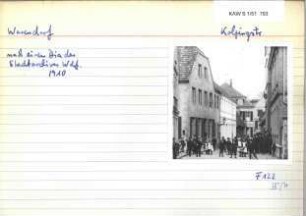 KAW S 1/51 763
Warendorf Kolpingstr
nach einem Dia des
Stadtarchivs Wdf.
1910
F 122